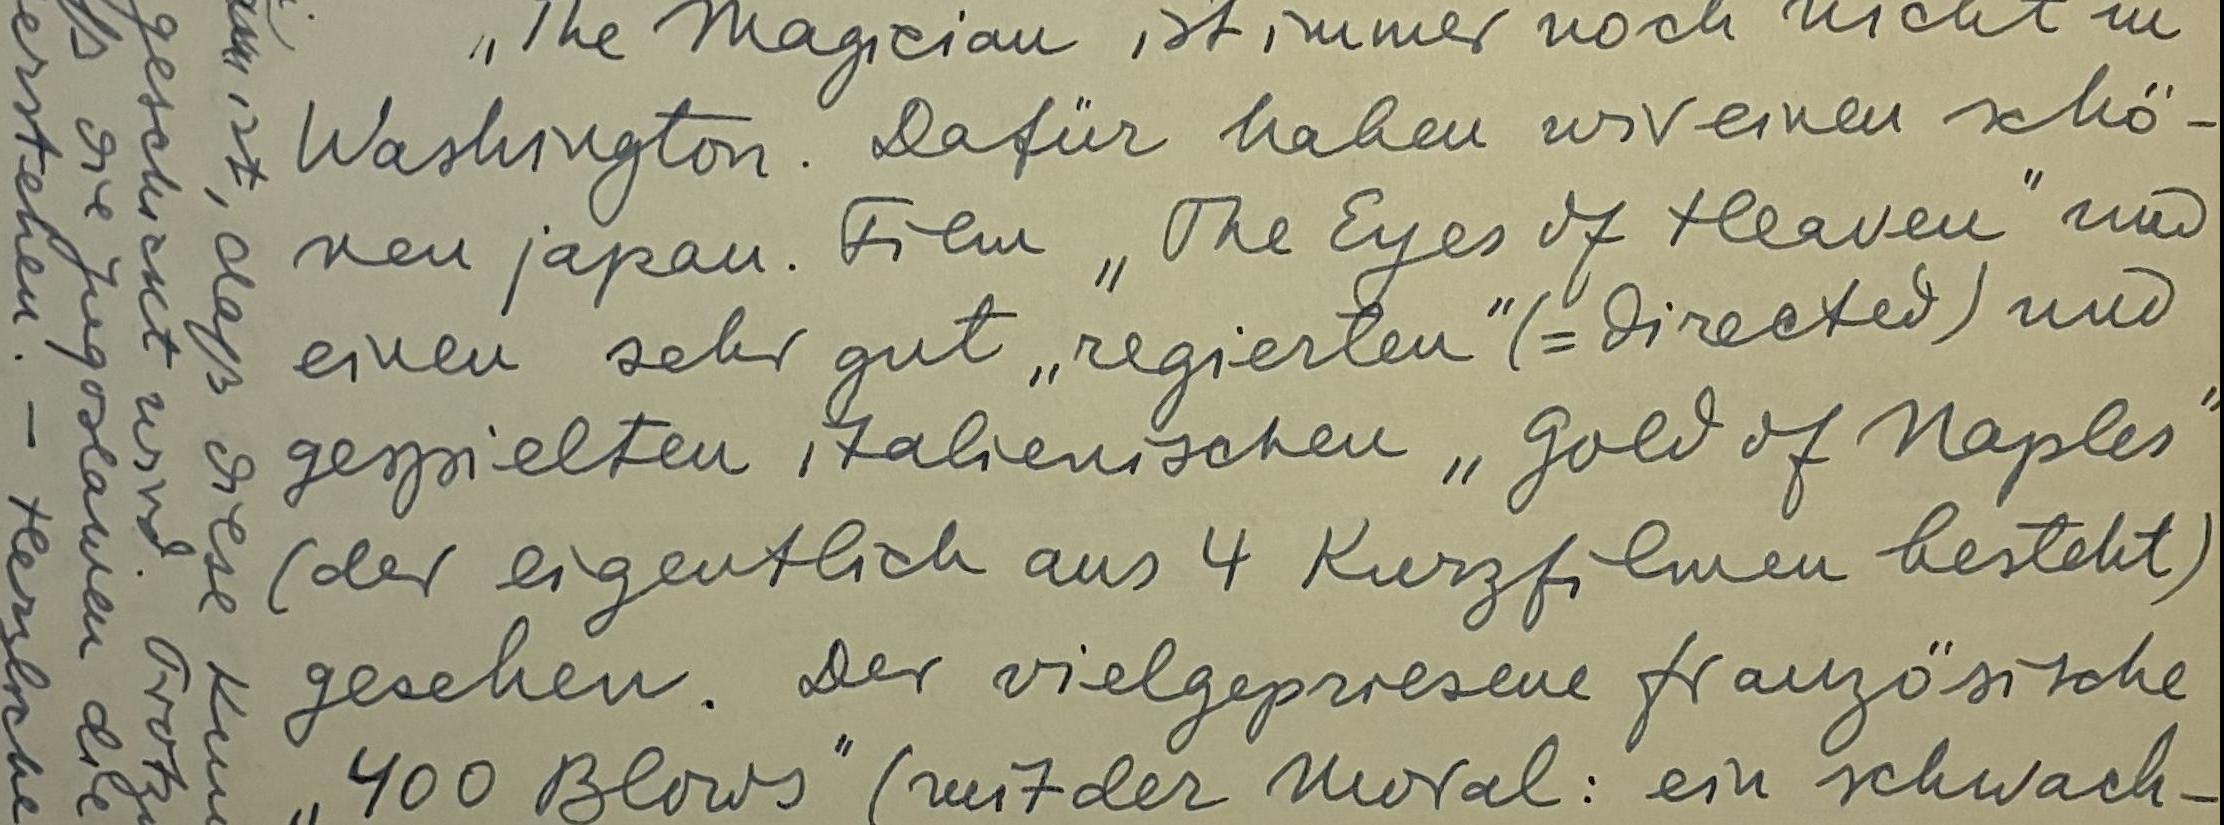 „The Magician ist immer noch nicht in
Washington. Dafür haben wir einen schö-
nen japan. Film „The Eyes of Heaven" und
einen sehr gut „regierten" (= directed) und
gespielten italienischen „Gold of Naples"
(der eigentlich aus 4 Kurzfilmen besteht)
gesehen. Der vielgepriesene französische
„400 Blows" (mit der Moral: ein schwach-
ist, daß diese
geschickt wird.
die Jugoslawien die
verstehen. – Herzliche